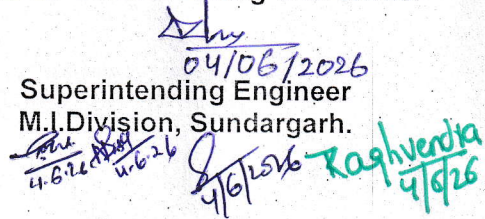 04/06/2026
Superintending Engineer
M.I.Division, Sundargarh.
4.6.26 4.6.26 4/6/2026 Raghvendra 4/6/26